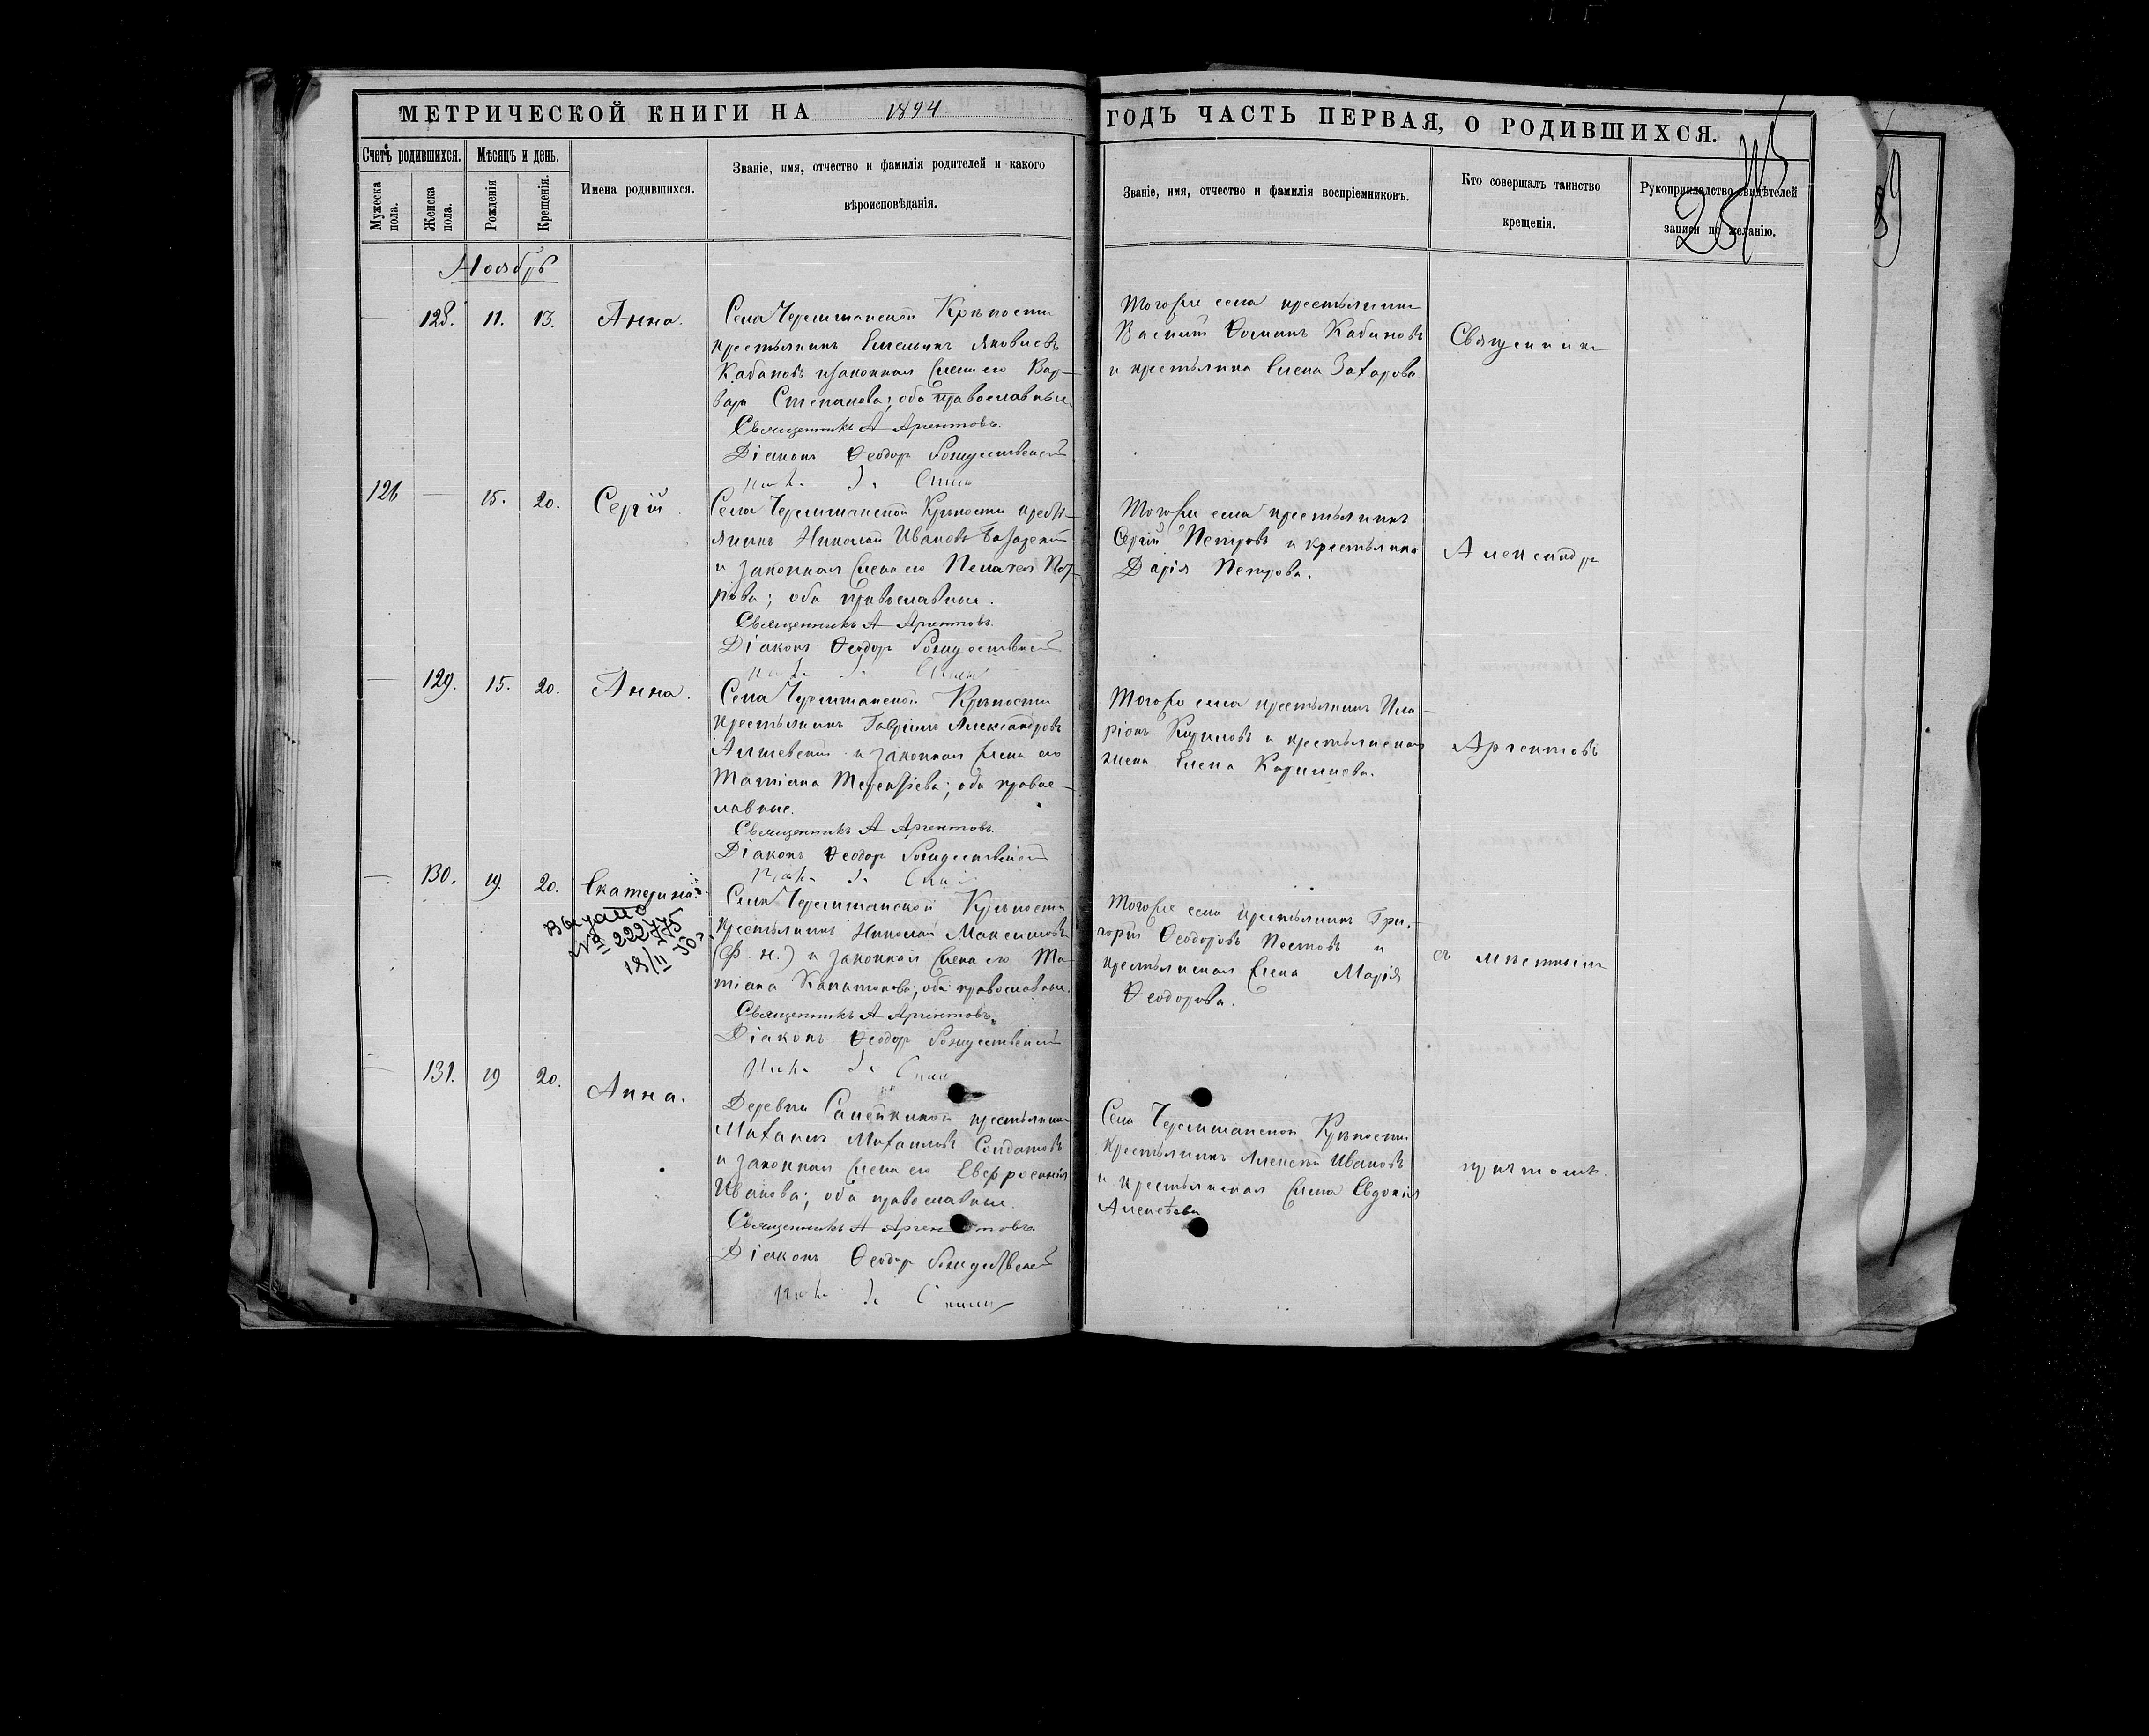 МЕТРИЧЕСКОЙ КНИГИ НА 1894 ГОДЪ ЧАСТЬ ПЕРВАЯ, О РОДИВШИХСЯ.
Счетъ родившихся.
Мужеска пола.
Женска пола.
Мѣсяцъ и день.
Рожденія
Крещенія.
Имена родившихся.
Званіе, имя, отчество и фамилія родителей и какого
вѣроисповѣданія.
Званіе, имя, отчество и фамилія воспріемниковъ.
Кто совершалъ таинство
крещенія.
Рукоприкладство свидѣтелей
записи по желанію.
Ноябрь
128. 11. 13. Анна.
Села Черемшанской Крѣпости
крестьянинъ Емельянъ Яковлевъ
Кабановъ и законная жена его Вар-
вара Степанова; оба православные.
Священникъ А Аргентовъ.
Діаконъ Ѳеодоръ Рождественскій
Того же села крестьянинъ
Василій Ѳоминъ Кабановъ
и крестьянка Елена Захарова.
Священникъ
126 15. 20. Сергій.
Села Черемшанской Крѣпости кресть-
янинъ Николай Ивановъ
и законная жена его Пелагея Пет-
рова; оба православные.
Священникъ А Аргентовъ.
Діаконъ Ѳеодоръ Рождественскій
Того же села крестьянинъ
Сергій Петровъ и крестьянка
Дарія Петрова.
Александръ
129. 15. 20. Анна.
Села Черемшанской Крѣпости
крестьянинъ Гавріилъ Александровъ
и законная жена его
Татіана Терентіева; оба право-
славные.
Священникъ А Аргентовъ.
Діаконъ Ѳеодоръ Рождественскій
Того же села крестьянинъ Ила-
ріонъ Кириловъ и крестьянская
жена Елена
Аргентовъ
130. 19. 20. Екатерина.
Выдано
№ 222775
18/II 30 г.
Села Черемшанской Крѣпости
крестьянинъ Николай Максимовъ
(ф. н.) и законная жена его Та-
тіана Капитонова; оба православные.
Священникъ А Аргентовъ.
Діаконъ Ѳеодоръ Рождественскій
Того же села крестьянинъ Гри-
горій Ѳеодоровъ Постновъ и
крестьянская жена Марія
Ѳеодорова.
съ мѣстнымъ
131. 19 20. Анна.
Деревни крестьянинъ
Михаилъ Михаиловъ Солдатовъ
и законная жена его Евфросинія
Иванова; оба православные.
Священникъ А Аргентовъ.
Діаконъ Ѳеодоръ Рождественскій
Села Черемшанской Крѣпости
крестьянинъ Алексѣй Ивановъ
и крестьянская жена Евдокія
Алексѣева
причтомъ.